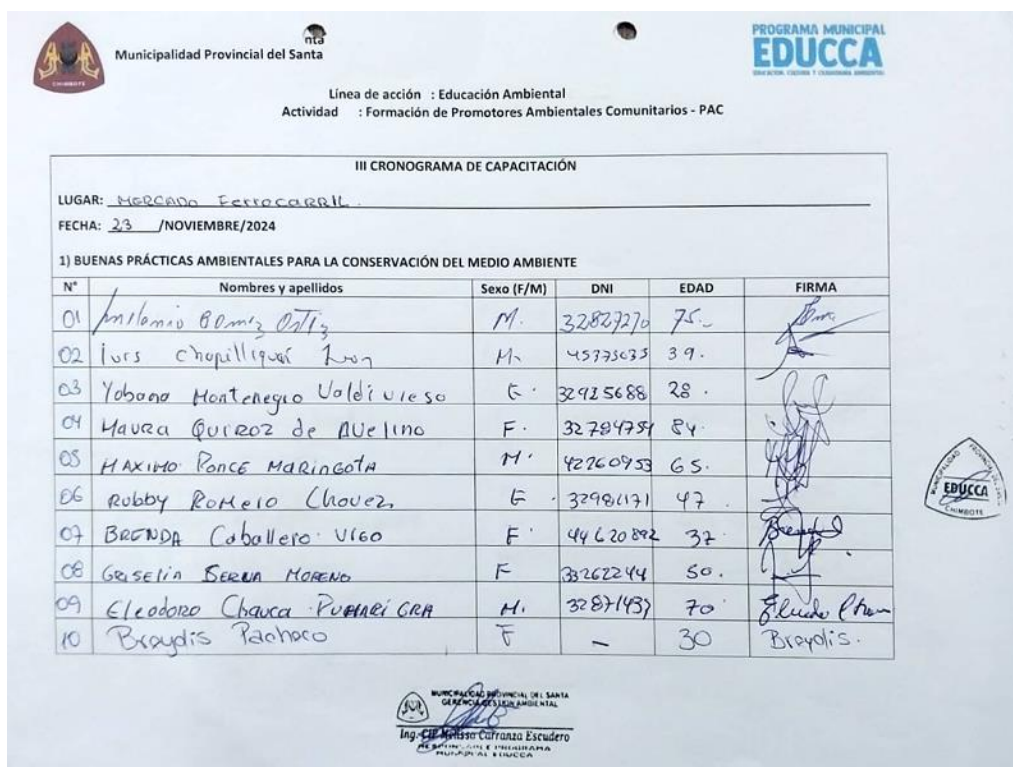 nta
Municipalidad Provincial del Santa
CHIMBOTE
PROGRAMA MUNICIPAL
EDUCCA
EDUCACIÓN, CULTURA Y CIUDADANÍA AMBIENTAL
Línea de acción : Educación Ambiental
Actividad : Formación de Promotores Ambientales Comunitarios - PAC
III CRONOGRAMA DE CAPACITACIÓN
LUGAR: MERCADO FERROCARRIL.
FECHA: 23 /NOVIEMBRE/2024
1) BUENAS PRÁCTICAS AMBIENTALES PARA LA CONSERVACIÓN DEL MEDIO AMBIENTE
N° Nombres y apellidos Sexo (F/M) DNI EDAD FIRMA
01 Gomez Ortiz M. 32827270 75.
02 Chapilliquí M. 39.
03 Yobana Montenegro Valdivieso F. 32925688 28.
04 Maura Quiroz de Avelino F. 32784751 84.
05 MAXIMO PONCE MARINGOTA M. 42260953 65.
06 Rubby Romero Chavez F. 32986171 47.
07 BRENDA Caballero VIGO F. 44620892 37.
08 GRISELIA SERNA MORENO F 33262244 50.
09 Eleodoro Chauca PUMARIGRA M. 32871437 70
10 Braydis Pacheco F — 30 Braydis.
MUNICIPALIDAD PROVINCIAL DEL SANTA
EDUCCA
CHIMBOTE
MUNICIPALIDAD PROVINCIAL DEL SANTA
GERENCIA GESTIÓN AMBIENTAL
Ing. CIP Melissa Carranza Escudero
RESPONSABLE PROGRAMA
MUNICIPAL EDUCCA